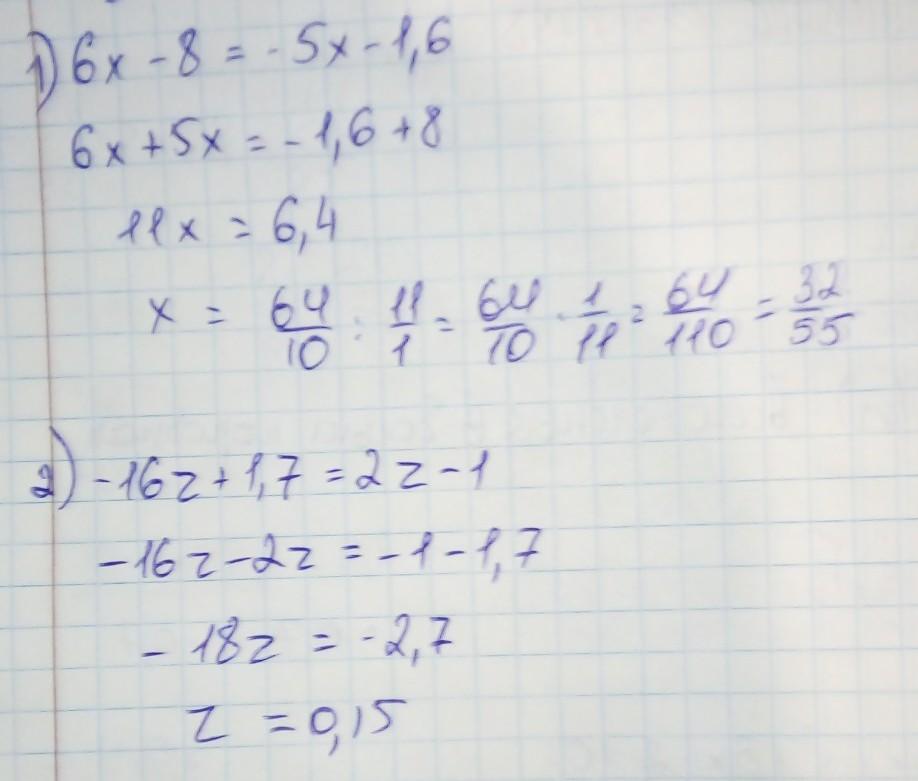 1) 6x - 8 = - 5x - 1,6
6x + 5x = - 1,6 + 8
11x = 6,4
x = 64/10 : 11/1 = 64/10 · 1/11 = 64/110 = 32/55
2) -16z + 1,7 = 2z - 1
-16z - 2z = -1 - 1,7
- 18z = -2,7
z = 0,15